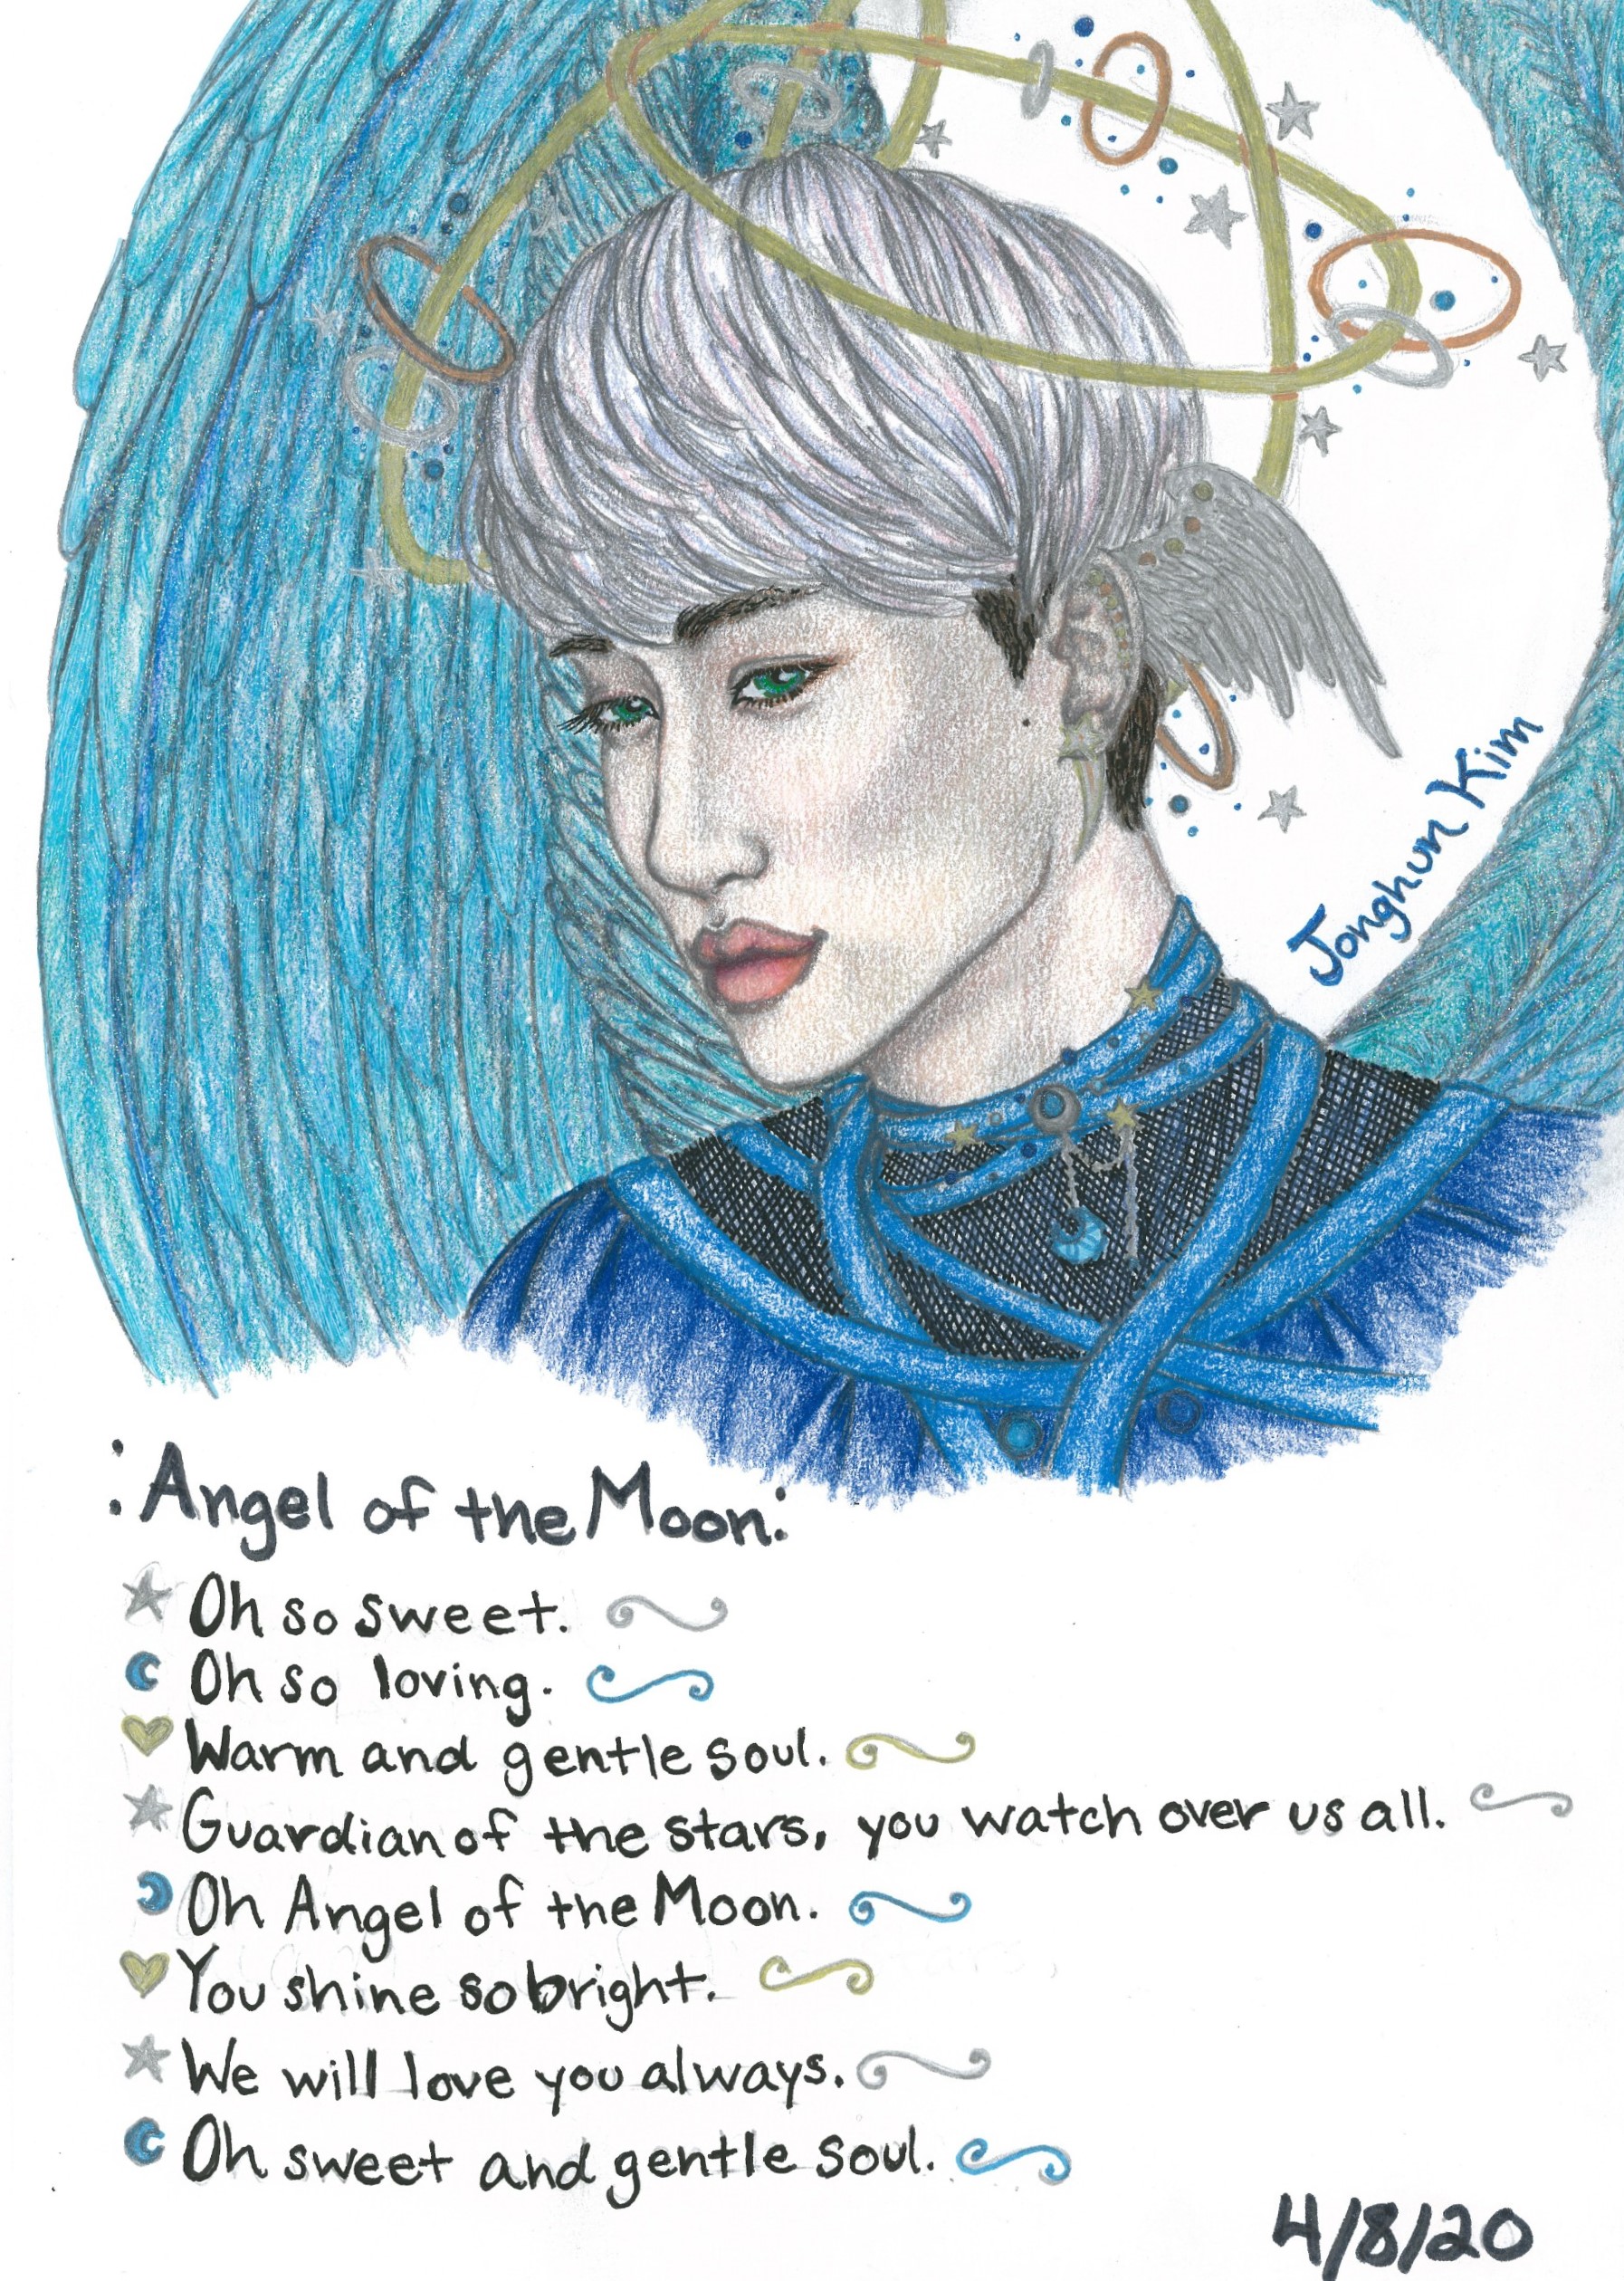 Jonghun Kim
:Angel of the Moon:
Oh so sweet.
Oh so loving.
Warm and gentle soul.
Guardian of the stars, you watch over us all.
Oh Angel of the Moon.
You shine so bright.
We will love you always.
Oh sweet and gentle soul.
4/8/20